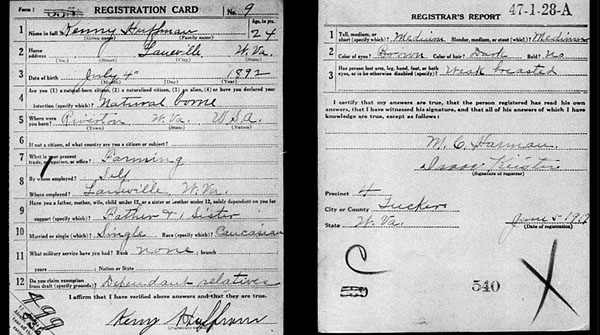 REGISTRATION CARD No. 9
1 Name in full Kenny Huffman Age, in yrs. 24
(Given name) (Family name)
2 Home address Laneville W. Va.
3 Date of birth July 4" 1892
(Month) (Day) (Year)
4 Are you (1) a natural-born citizen, (2) a naturalized citizen, (3) an alien, (4) or have you declared your
intention (specify which)? Natural borne
5 Where were you born? Riverton W. Va. U.S.A.
(Town) (State) (Nation)
6 If not a citizen, of what country are you a citizen or subject?
7 What is your present trade, occupation, or office? Farming
8 By whom employed? Self
Where employed? Laneville W. Va.
9 Have you a father, mother, wife, child under 12, or a sister or brother under 12, solely dependent on you for
support (specify which)? Father & 1 Sister
10 Married or single (which)? Single Race (specify which)? Caucasian
11 What military service have you had? Rank none; branch
years Nation or State
12 Do you claim exemption from draft (specify grounds)? Dependant relatives
I affirm that I have verified above answers and that they are true.
Keny Huffman
499
REGISTRAR'S REPORT 47-1-28-A
1 Tall, medium, or short (specify which)? Medium Slender, medium, or stout (which)? Medium
2 Color of eyes? Brown Color of hair? Dark Bald? No
3 Has person lost arm, leg, hand, foot, or both eyes, or is he otherwise disabled (specify)? Weak breasted
I certify that my answers are true, that the person registered has read his own
answers, that I have witnessed his signature, and that all of his answers of which I have
knowledge are true, except as follows:
M. C. Harman
Isaac Keister
(Signature of registrar)
Precinct 4
City or County Tucker
State W. Va. June 5 - 1917
(Date of registration)
C
540
X